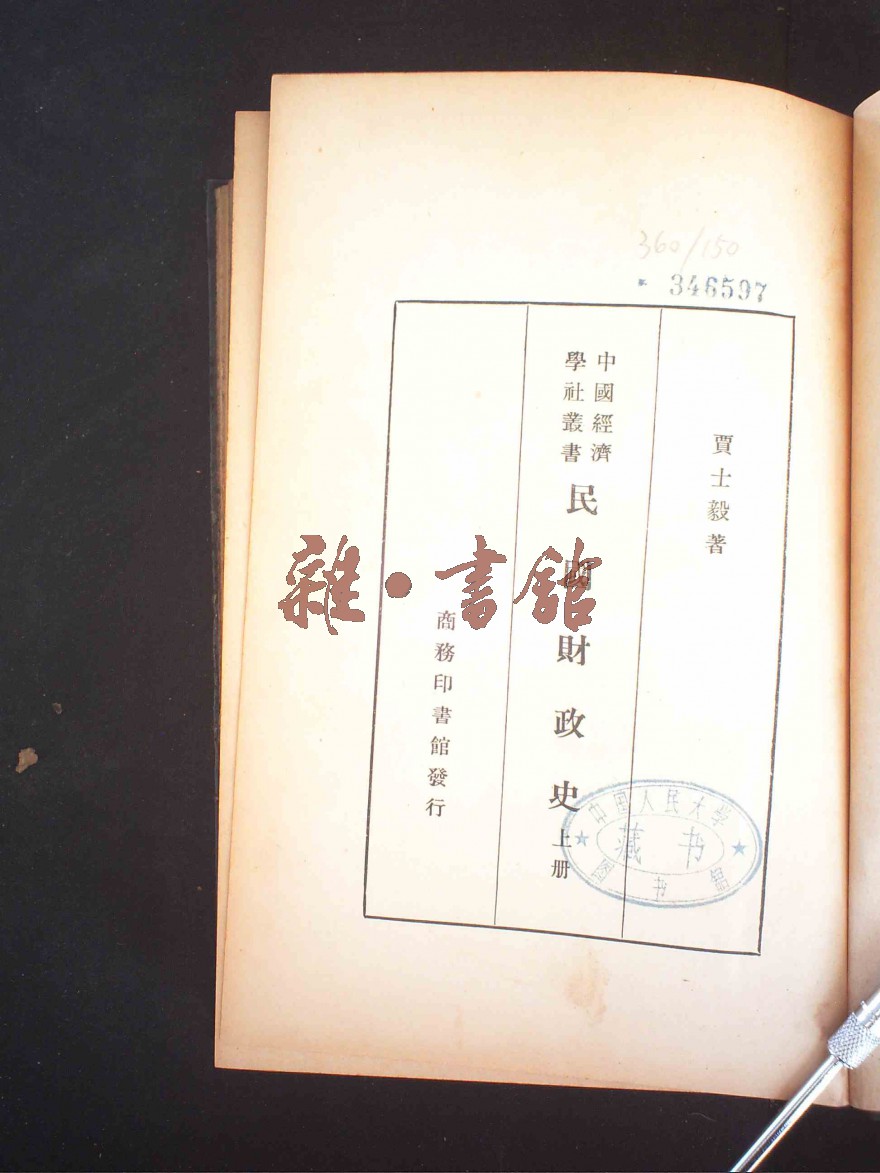 360/150
346597
賈士毅著
中國經濟
學社叢書
民國財政史上册
商務印書館發行
雜·書館
中国人民大学
藏书
圖书館